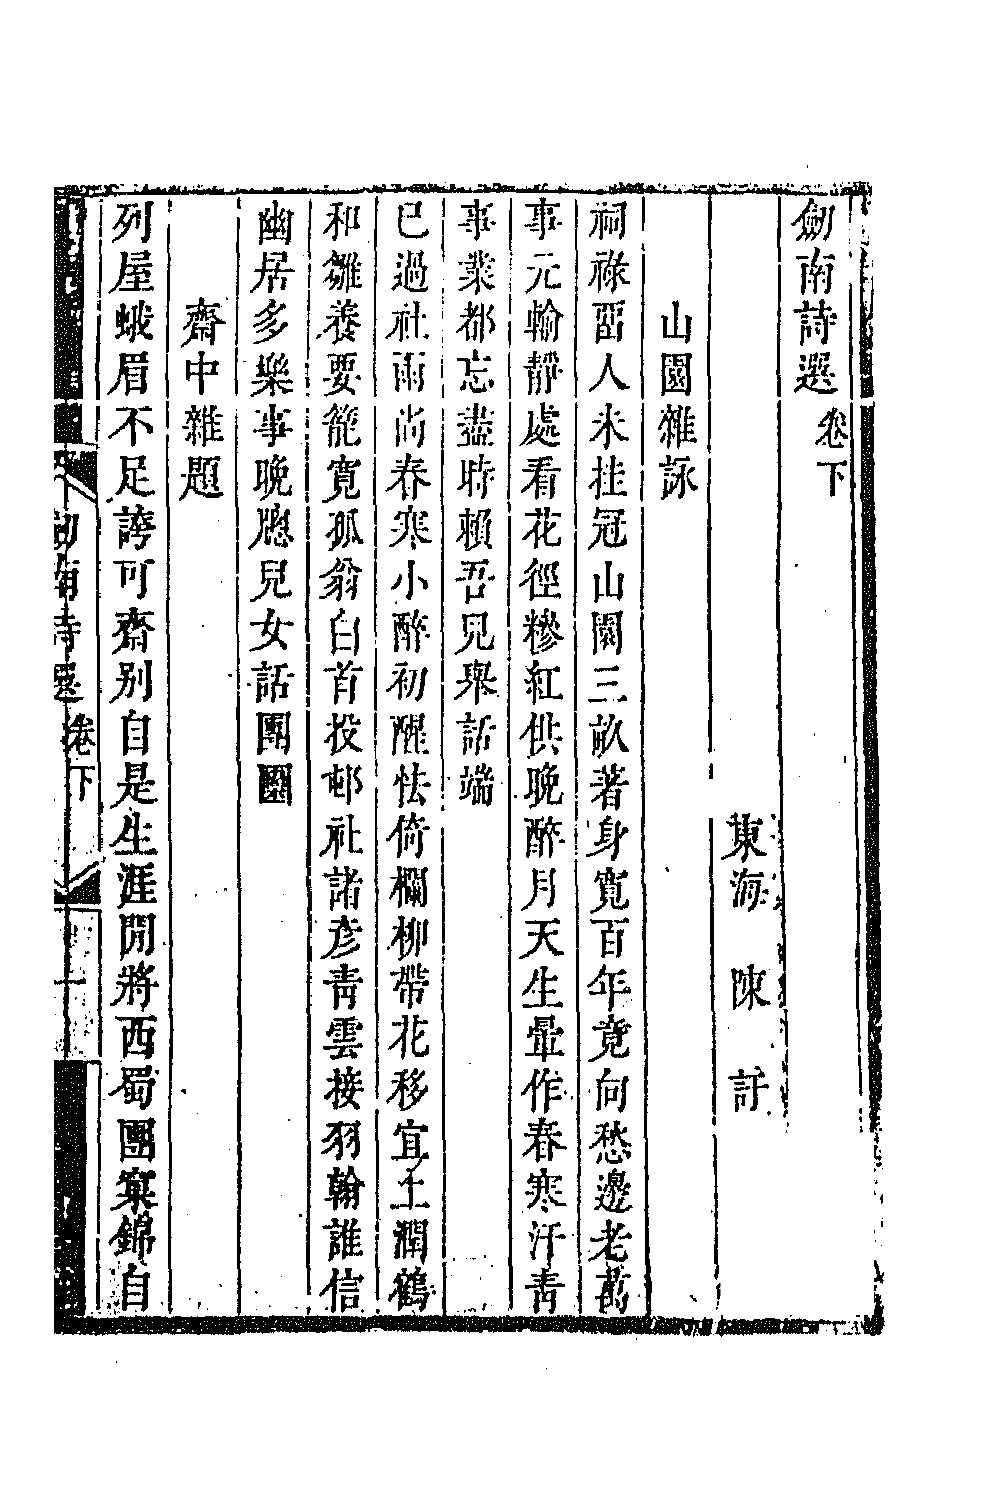 劒南詩選卷下
東海陳訏
山園雜詠
祠祿畱人未挂冠山園三畝著身寬百年竟向愁邊老萬
事元輸靜處看花徑糝紅供晚醉月天生暈作春寒汗青
事業都忘盡時賴吾兒舉話端
已過社雨尚春寒小醉初醒怯倚欄柳帶花移宜土潤鶴
和雛養要籠寬孤翁白首投邨社諸彥青雲接羽翰誰信
幽居多樂事晚牕兒女話團圞
齋中雜題
列屋蛾眉不足誇可齋别自是生涯閒將西蜀團窠錦自
劒南詩選
卷下
一